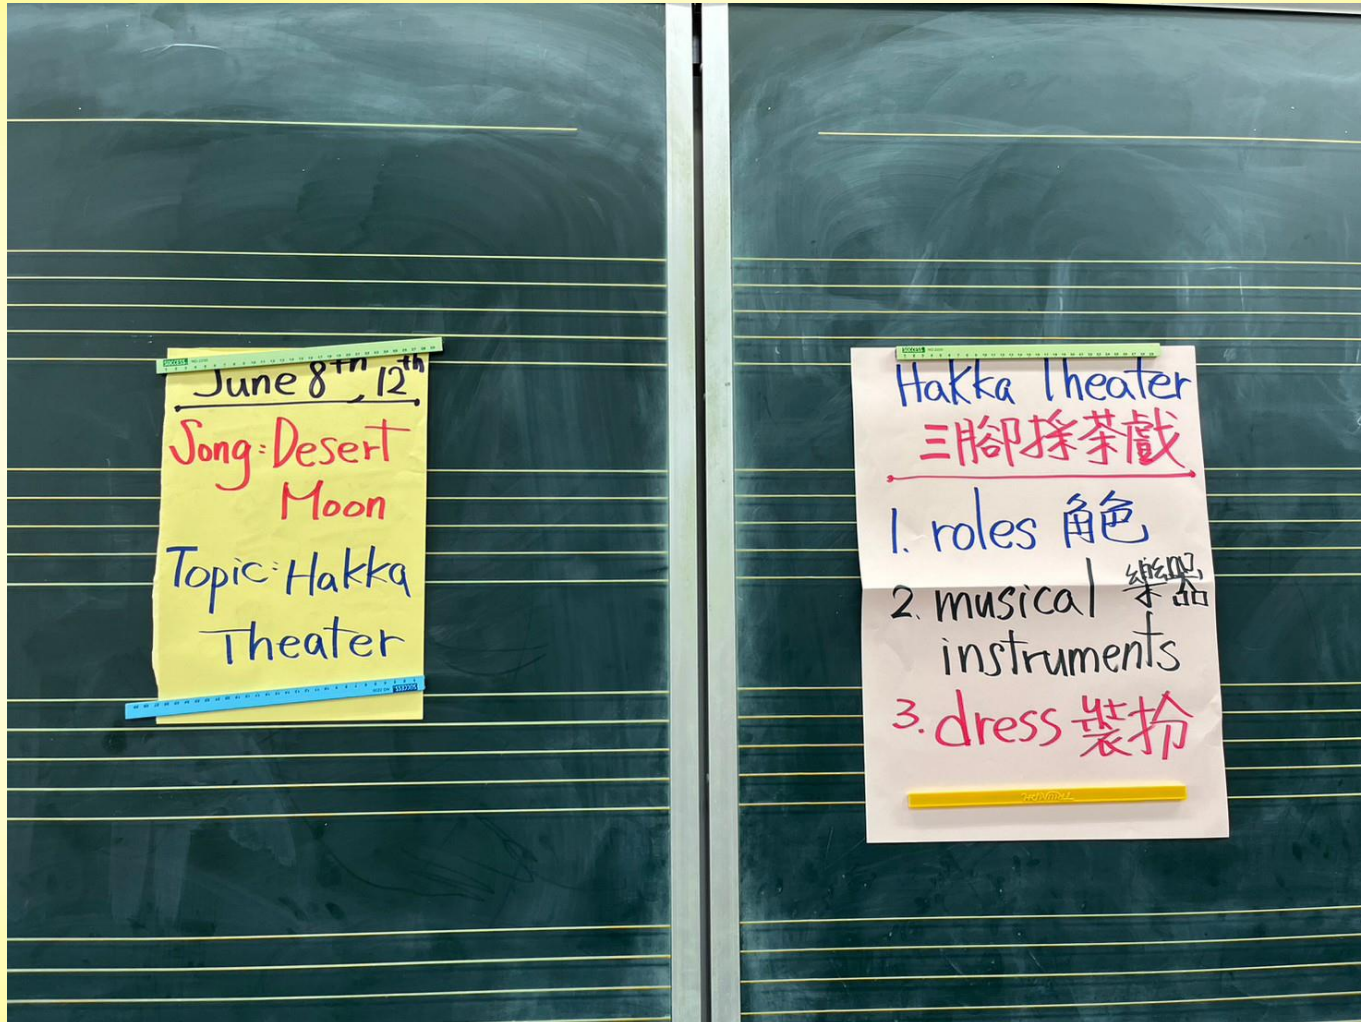 June 8th, 12th
Song: Desert
Moon
Topic: Hakka
Theater
SUCCESS
Hakka Theater
三腳採茶戲
1. roles 角色
2. musical 樂器
instruments
3. dress 裝扮
SUCCESS